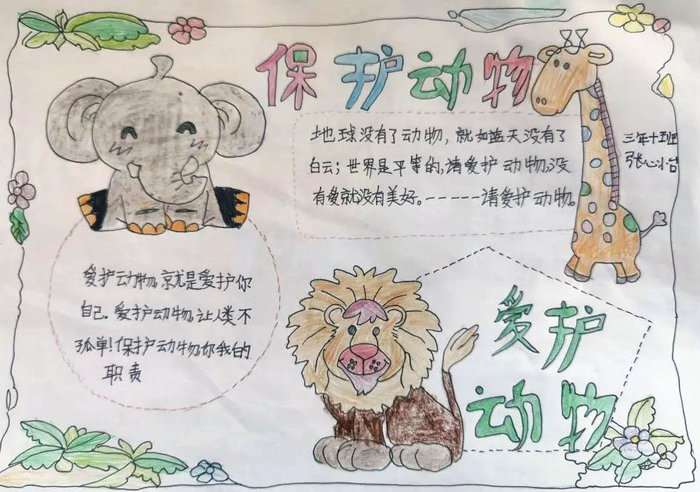 保护动物
地球没有了动物，就如蓝天没有了
白云；世界是平等的，请爱护动物，没
有爱就没有美好。------请爱护动物。
三年十五班
爱护动物，就是爱护你
自己．爱护动物，让人类不
孤单！保护动物你我的
职责
爱护
动物